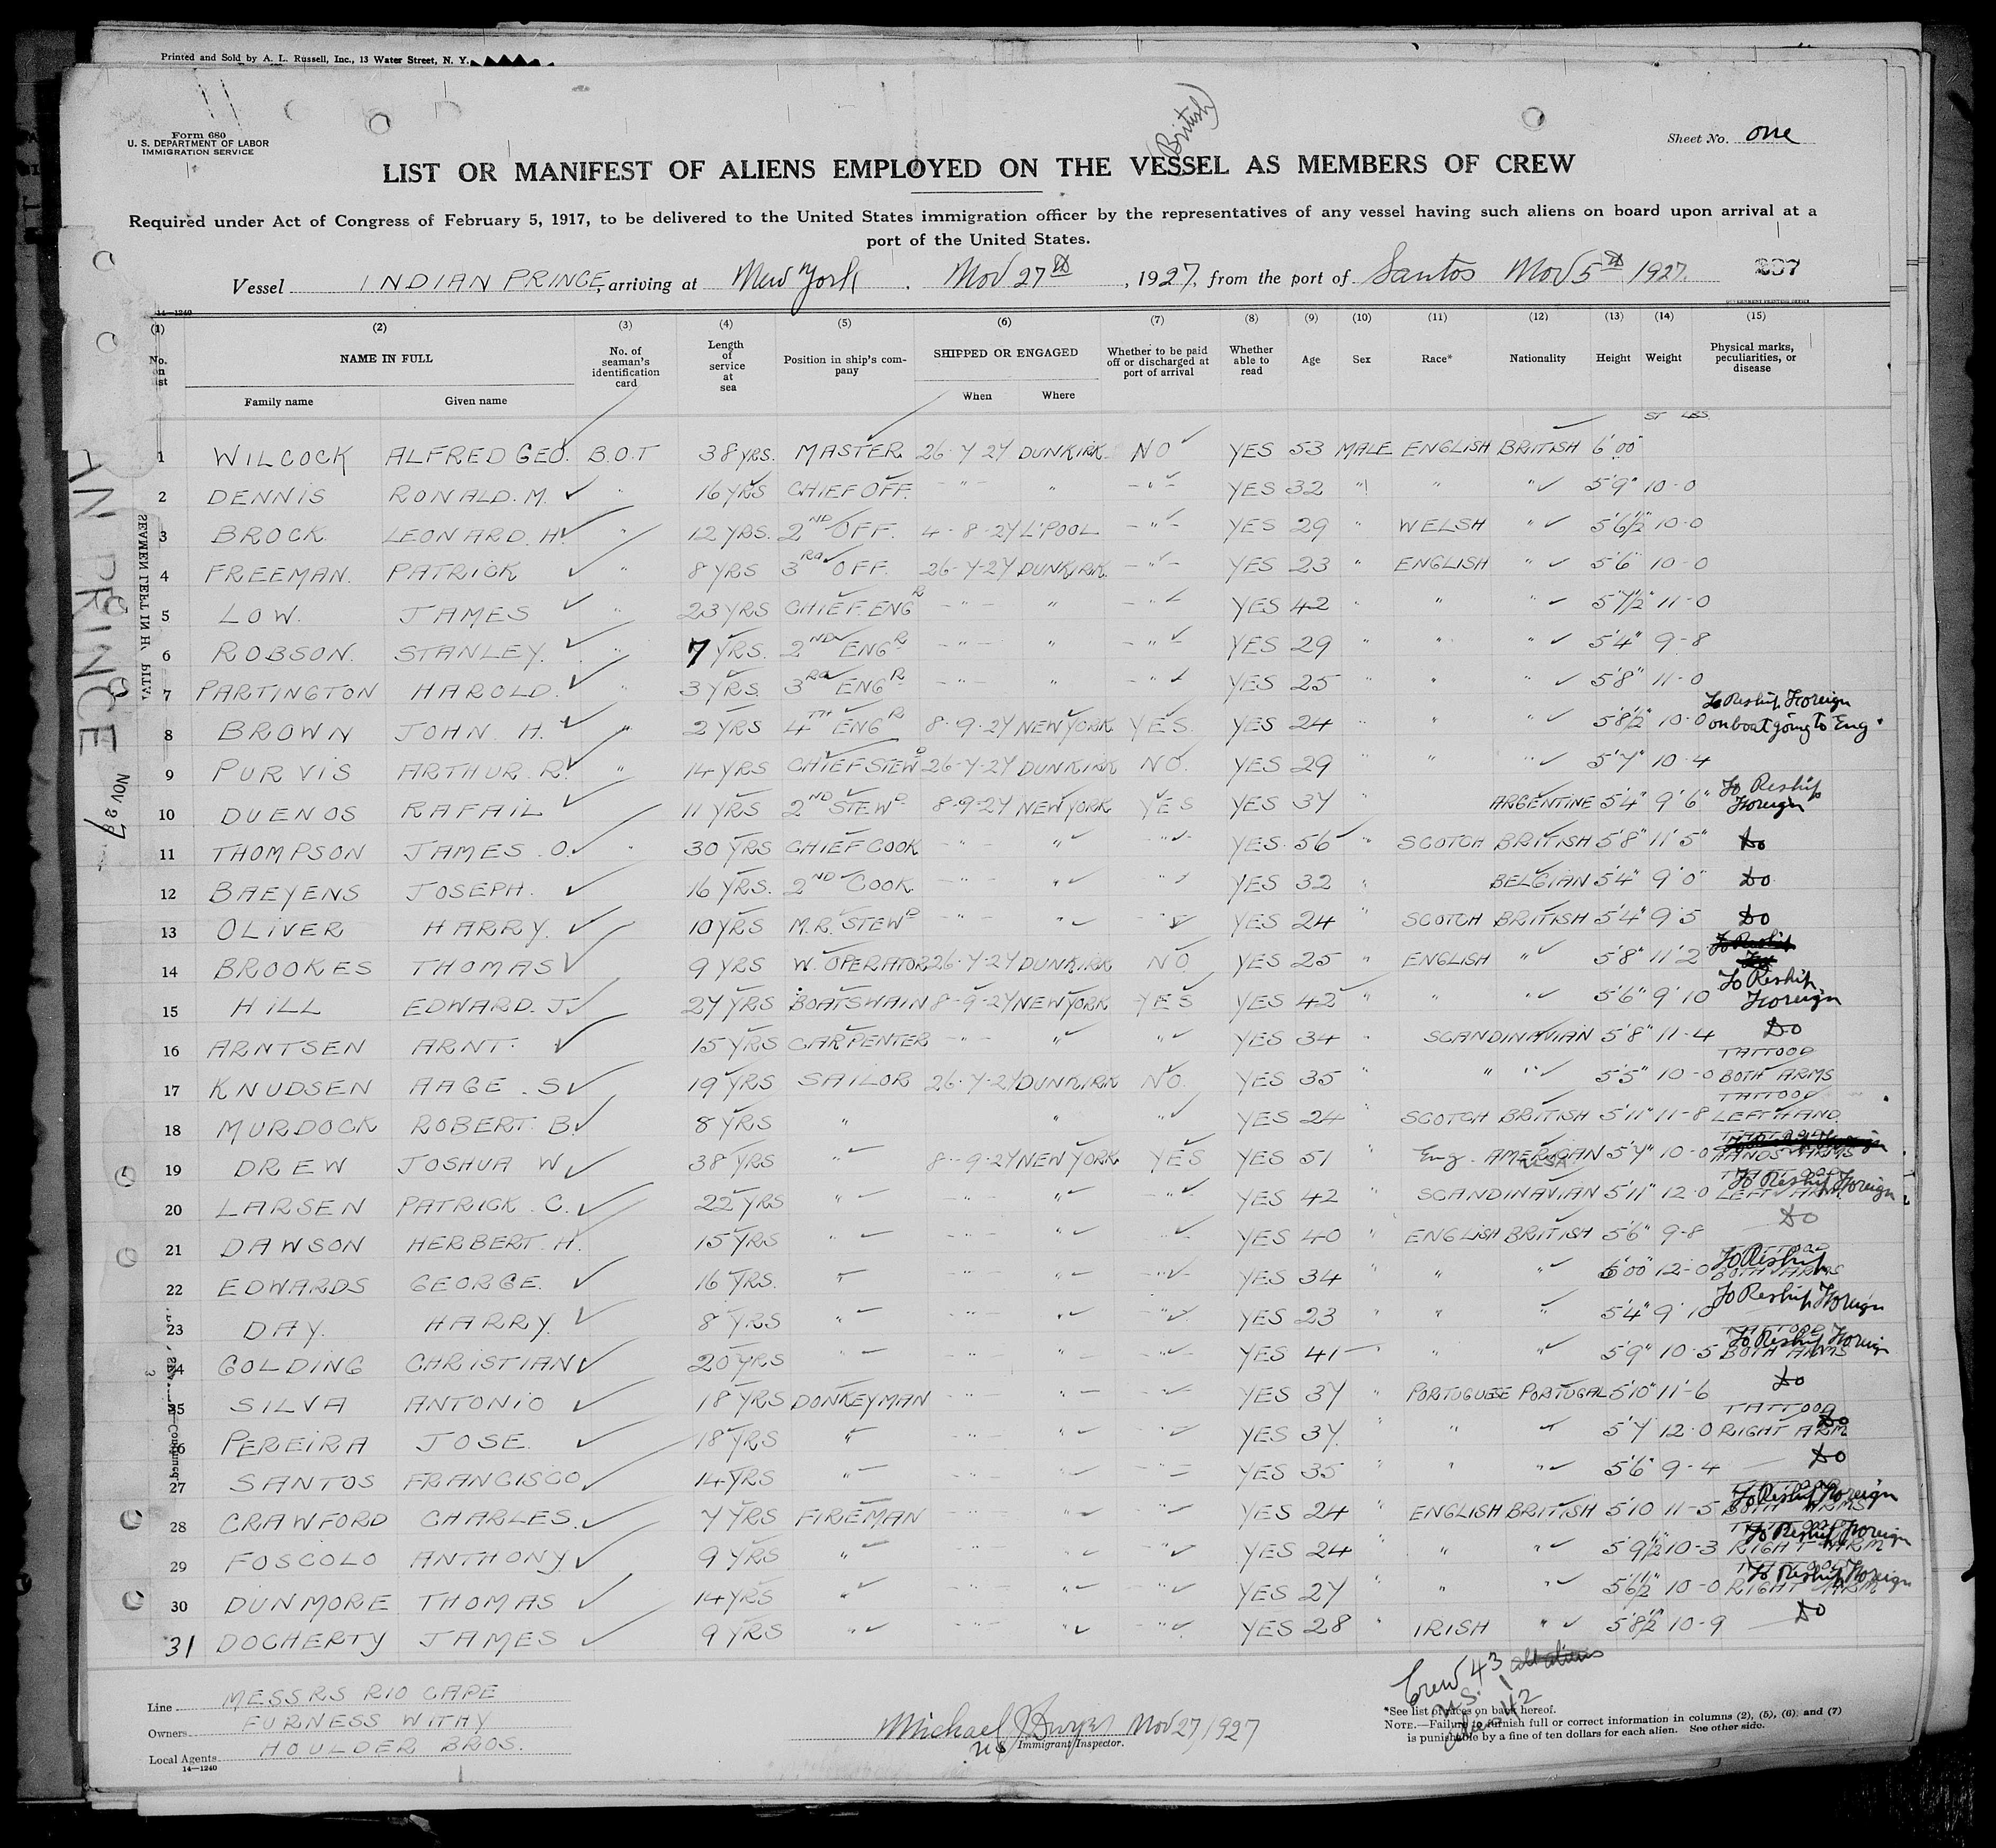 Printed and Sold by A. L. Russell, Inc., 13 Water Street, N. Y.
(British)
Form 680
U. S. DEPARTMENT OF LABOR
IMMIGRATION SERVICE
Sheet No. one
LIST OR MANIFEST OF ALIENS EMPLOYED ON THE VESSEL AS MEMBERS OF CREW
Required under Act of Congress of February 5, 1917, to be delivered to the United States immigration officer by the representatives of any vessel having such aliens on board upon arrival at a
port of the United States.
Vessel INDIAN PRINCE, arriving at New York. Nov 27th, 1927, from the port of Santos Nov 5th 1927.
14—1240
(1) (2) (3) (4) (5) (6) (7) (8) (9) (10) (11) (12) (13) (14) (15)
No. on list NAME IN FULL No. of seaman's identification card Length of service at sea Position in ship's company SHIPPED OR ENGAGED Whether to be paid off or discharged at port of arrival Whether able to read Age Sex Race* Nationality Height Weight Physical marks, peculiarities, or disease
Family name Given name When Where
ST LBS
1 WILCOCK ALFRED GEO. B.O.T 38 YRS. MASTER 26-7-27 DUNKIRK NO YES 53 MALE ENGLISH BRITISH 6'00"
2 DENNIS RONALD. M. " 16 YRS CHIEF OFF. -"- " -"- YES 32 " " " 5'9" 10-0
3 BROCK LEONARD. H. " 12 YRS. 2ND OFF. 4-8-27 L'POOL -"- YES 29 " WELSH " 5'6½" 10-0
4 FREEMAN. PATRICK " 8 YRS 3RD OFF. 26-7-27 DUNKIRK -"- YES 23 " ENGLISH " 5'6" 10-0
5 LOW. JAMES " 23 YRS CHIEF ENGR -"- " -"- YES 42 " " " 5'7½" 11-0
6 ROBSON. STANLEY. " 7 YRS. 2ND ENGR -"- " -"- YES 29 " " " 5'4" 9-8
7 PARTINGTON HAROLD. " 3 YRS. 3RD ENGR -"- " -"- YES 25 " " " 5'8" 11-0
8 BROWN JOHN. H. " 2 YRS 4TH ENGR 8-9-27 NEW YORK YES YES 24 " " " 5'8½" 10-0 To Reship Foreign on boat going to Eng.
9 PURVIS ARTHUR. R. " 14 YRS CHIEF STEWD 26-7-27 DUNKIRK NO. YES 29 " " " 5'7" 10-4
10 DUENOS RAFAIL 11 YRS 2ND STEWD 8-9-27 NEW YORK YES YES 37 " ARGENTINE 5'4" 9'6" To Reship Foreign
11 THOMPSON JAMES. O. " 30 YRS CHIEF COOK -"- " " YES 56 " SCOTCH BRITISH 5'8" 11'5" Do
12 BAEYENS JOSEPH. 16 YRS. 2ND COOK -"- " " YES 32 " BELGIAN 5'4" 9'0" Do
13 OLIVER HARRY. 10 YRS M.R. STEWD -"- " " YES 24 " SCOTCH BRITISH 5'4" 9'5 Do
14 BROOKES THOMAS 9 YRS W. OPERATOR 26-7-27 DUNKIRK NO YES 25 " ENGLISH " 5'8" 11'2
15 HILL EDWARD. J. 27 YRS BOATSWAIN 8-9-27 NEW YORK YES YES 42 " " " 5'6" 9'10 To Reship Foreign
16 ARNTSEN ARNT. 15 YRS CARPENTER -"- " " YES 34 " SCANDINAVIAN 5'8" 11-4 Do
17 KNUDSEN AAGE. S. 19 YRS SAILOR 26-7-27 DUNKIRK NO. YES 35 " " " 5'5" 10-0 TATTOOD BOTH ARMS
18 MURDOCK ROBERT. B. 8 YRS " " " YES 24 SCOTCH BRITISH 5'11" 11-8 TATTOOD LEFT HAND
19 DREW JOSHUA W 38 YRS " 8-9-27 NEW YORK YES YES 51 " Eng. AMERICAN USA 5'7" 10-0 HANDS ARMS
20 LARSEN PATRICK. C. 22 YRS " -"- " " YES 42 " SCANDINAVIAN 5'11" 12-0 LEFT ARM To Reship Foreign
21 DAWSON HERBERT. H. 15 YRS " -"- " " YES 40 " ENGLISH BRITISH 5'6" 9-8 Do
22 EDWARDS GEORGE. 16 YRS. " -"- " " YES 34 " " " 6'00 12-0 TATTOOD BOTH ARMS To Reship
23 DAY. HARRY. 8 YRS " -"- " " YES 23 " " " 5'4" 9'10 To Reship Foreign
24 GOLDING CHRISTIAN 20 YRS " -"- " " YES 41 " " " 5'9" 10-5 TATTOOD BOTH ARMS To Reship Foreign
25 SILVA ANTONIO 18 YRS DONKEYMAN -"- " " YES 37 " PORTUGUESE PORTUGAL 5'10" 11'-6 Do
26 PEREIRA JOSE. 18 YRS " -"- " " YES 37. " " " 5'7 12-0 TATTOOD RIGHT ARM Do
27 SANTOS FRANCISCO 14 YRS " -"- " " YES 35 " " " 5'6" 9-4 Do
28 CRAWFORD CHARLES. 7 YRS FIREMAN -"- " " YES 24 " ENGLISH BRITISH 5'10 11-5 BOTH ARMS To Reship Foreign
29 FOSCOLO ANTHONY 9 YRS " -"- " " YES 24 " " " 5'9½" 10-3 TATTOOD RIGHT ARM To Reship Foreign
30 DUNMORE THOMAS 14 YRS " -"- " " YES 27 " " " 5'6½" 10-0 TATTOOD RIGHT ARM To Reship Foreign
31 DOCHERTY JAMES 9 YRS " -"- " " YES 28 " IRISH " 5'8½" 10-9 Do
AN PRINCE
NOV 28
SEAMEN LEFT IN H
Crew 43 all aliens
U.S. 1
Aliens 42
Line MESSRS RIO CAPE
Owners FURNESS WITHY
Local Agents HOULDER BROS.
14—1240
Michael J Dwyer Nov 27, 1927
Immigrant Inspector.
*See list of races on back hereof.
NOTE.—Failure to furnish full or correct information in columns (2), (5), (6), and (7)
is punishable by a fine of ten dollars for each alien. See other side.